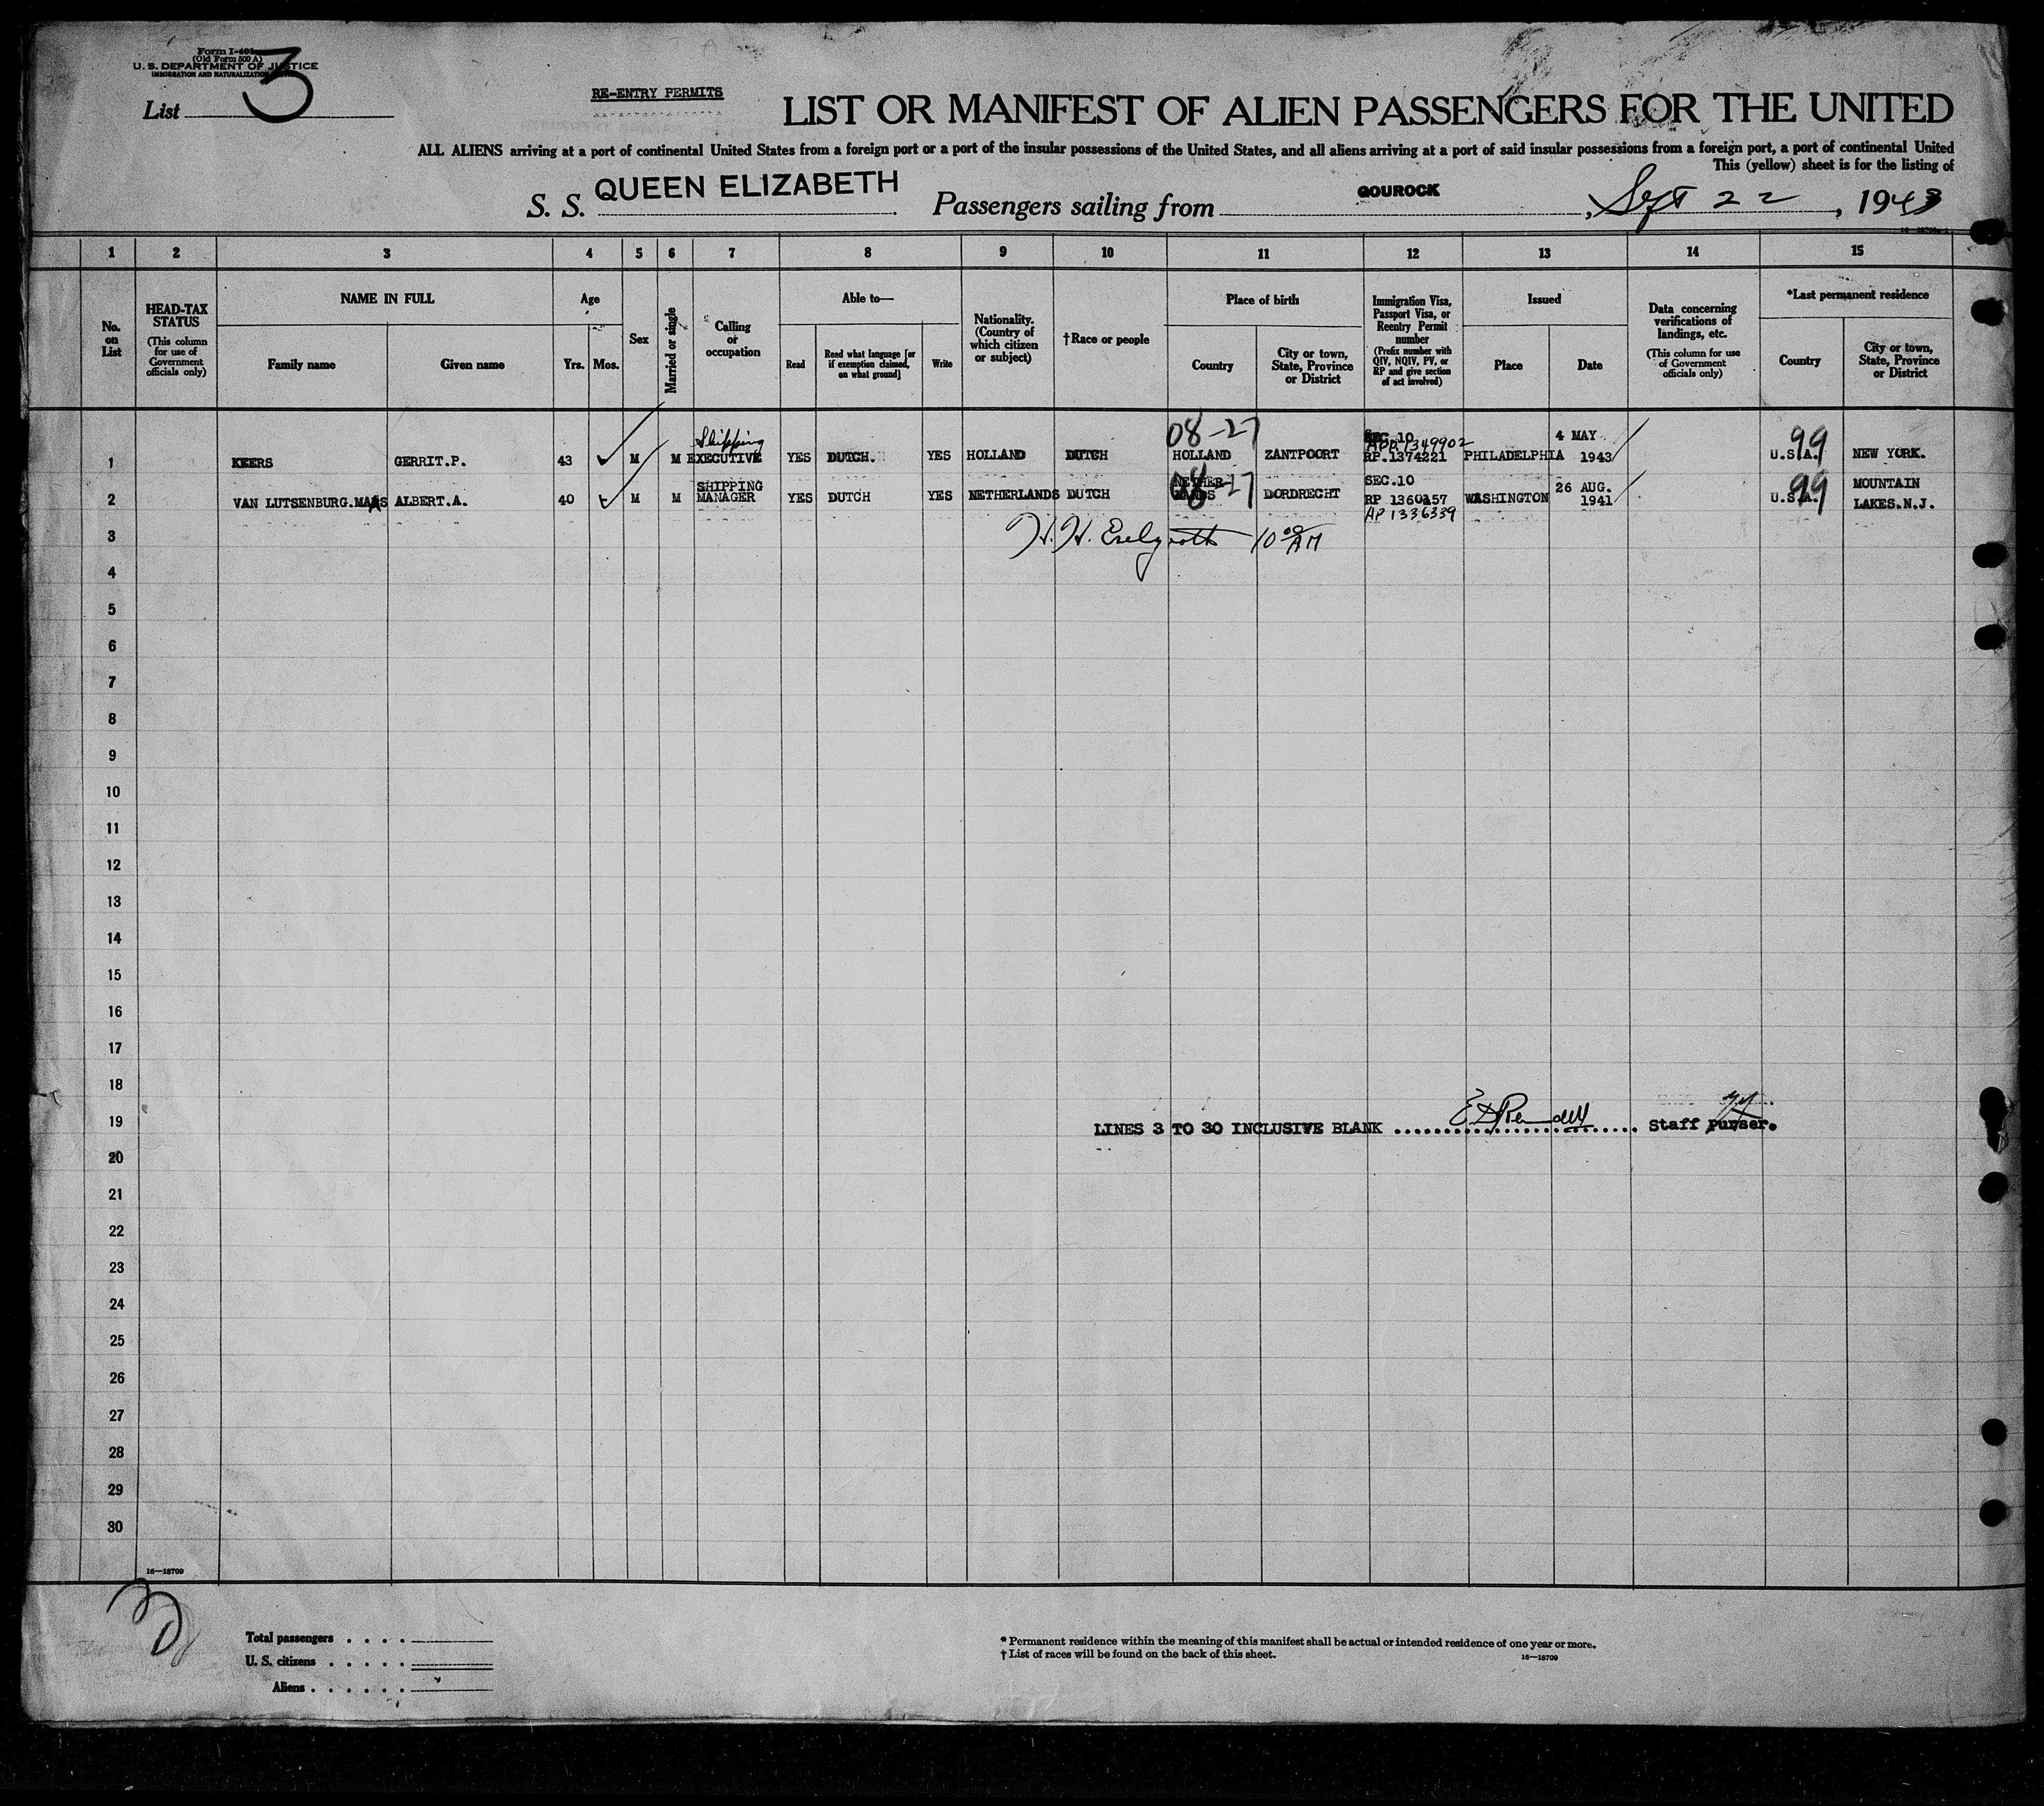 Form I-401
(Old Form 500 A)
U. S. DEPARTMENT OF JUSTICE
IMMIGRATION AND NATURALIZATION
List 3
RE-ENTRY PERMITS
LIST OR MANIFEST OF ALIEN PASSENGERS FOR THE UNITED
ALL ALIENS arriving at a port of continental United States from a foreign port or a port of the insular possessions of the United States, and all aliens arriving at a port of said insular possessions from a foreign port, a port of continental United
This (yellow) sheet is for the listing of
S. S. QUEEN ELIZABETH Passengers sailing from GOUROCK, Sept 22, 1943
1 2 3 4 5 6 7 8 9 10 11 12 13 14 15
No. on List
HEAD-TAX STATUS (This column for use of Government officials only)
NAME IN FULL
Family name Given name
Age
Yrs. Mos.
Sex
Married or single
Calling or occupation
Able to—
Read Read what language [or if exemption claimed, on what ground] Write
Nationality. (Country of which citizen or subject)
†Race or people
Place of birth
Country City or town, State, Province or District
Immigration Visa, Passport Visa, or Reentry Permit number (Prefix number with QIV, NQIV, PV, or RP and give section of act involved)
Issued
Place Date
Data concerning verifications of landings, etc. (This column for use of Government officials only)
*Last permanent residence
Country City or town, State, Province or District
Shipping 08-27 SEC.10 1349902 4 MAY 99
1 KEERS GERRIT.P. 43 M M EXECUTIVE YES DUTCH. YES HOLLAND DUTCH HOLLAND ZANTPOORT RP.1374221 PHILADELPHIA 1943 U.S.A. NEW YORK.
SHIPPING NETHER- 08-27 SEC.10 26 AUG. 99 MOUNTAIN
2 VAN LUTSENBURG.MAAS ALBERT.A. 40 M M MANAGER YES DUTCH YES NETHERLANDS DUTCH LANDS DORDRECHT RP 1360157 WASHINGTON 1941 U.S.A. LAKES.N.J.
AP 1336339
3 H. H. 10 00 AM
4
5
6
7
8
9
10
11
12
13
14
15
16
17
18
19 LINES 3 TO 30 INCLUSIVE BLANK Staff Purser.
20
21
22
23
24
25
26
27
28
29
30
16—18709
Total passengers
U. S. citizens
Aliens
* Permanent residence within the meaning of this manifest shall be actual or intended residence of one year or more.
† List of races will be found on the back of this sheet.
16—18709